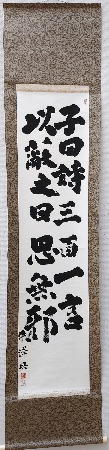 子曰詩三百一言
以蔽之曰思無邪